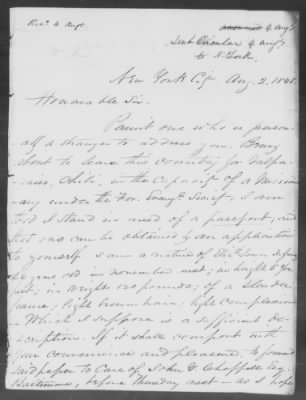 Rec'd 4 Aug't
answered 4 Aug't
Sent Circular 4 Aug't
to N. York.
New York City Aug. 2. 1845.
Honorable Sir.
Permit one who is person-
ally a stranger to address you. Being
about to leave this country for Valpa-
raiso, Chili, in the capacity of a Mission-
ary under the For. Evang'l Society, I am
told I stand in need of a passport, and
that one can be obtained by an application
to yourself. I am a native of
26 years old in november next, in height 5 feet
in weight pounds, of a slender
frame, light brown hair, light complexion
- Which I suppose is a sufficient de-
scription. If it shall comport with
your convenience and pleasure, to forward
said paper to Care of John G Chappell Esq.
Baltimore, before Thursday next - as I hope